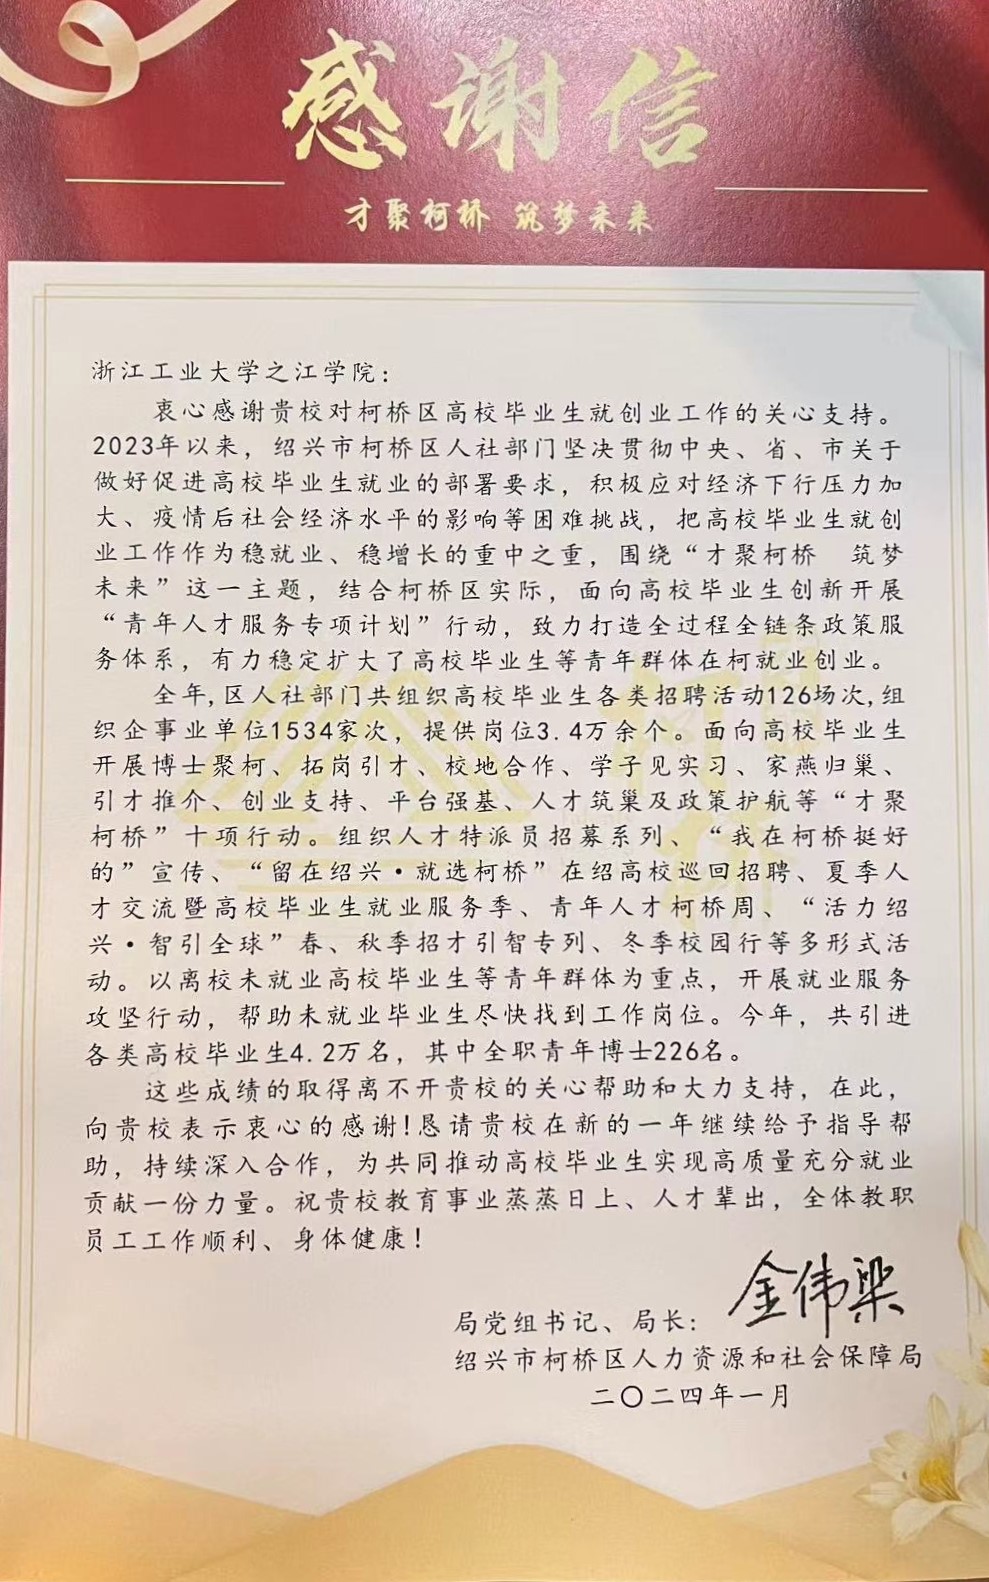 感谢信
才聚柯桥 筑梦未来
浙江工业大学之江学院：
衷心感谢贵校对柯桥区高校毕业生就创业工作的关心支持。
2023年以来，绍兴市柯桥区人社部门坚决贯彻中央、省、市关于
做好促进高校毕业生就业的部署要求，积极应对经济下行压力加
大、疫情后社会经济水平的影响等困难挑战，把高校毕业生就创
业工作作为稳就业、稳增长的重中之重，围绕“才聚柯桥　筑梦
未来”这一主题，结合柯桥区实际，面向高校毕业生创新开展
“青年人才服务专项计划”行动，致力打造全过程全链条政策服
务体系，有力稳定扩大了高校毕业生等青年群体在柯就业创业。
全年,区人社部门共组织高校毕业生各类招聘活动126场次,组
织企事业单位1534家次，提供岗位3.4万余个。面向高校毕业生
开展博士聚柯、拓岗引才、校地合作、学子见实习、家燕归巢、
引才推介、创业支持、平台强基、人才筑巢及政策护航等“才聚
柯桥”十项行动。组织人才特派员招募系列、“我在柯桥挺好
的”宣传、“留在绍兴·就选柯桥”在绍高校巡回招聘、夏季人
才交流暨高校毕业生就业服务季、青年人才柯桥周、“活力绍
兴·智引全球”春、秋季招才引智专列、冬季校园行等多形式活
动。以离校未就业高校毕业生等青年群体为重点，开展就业服务
攻坚行动，帮助未就业毕业生尽快找到工作岗位。今年，共引进
各类高校毕业生4.2万名，其中全职青年博士226名。
这些成绩的取得离不开贵校的关心帮助和大力支持，在此，
向贵校表示衷心的感谢!恳请贵校在新的一年继续给予指导帮
助，持续深入合作，为共同推动高校毕业生实现高质量充分就业
贡献一份力量。祝贵校教育事业蒸蒸日上、人才辈出，全体教职
员工工作顺利、身体健康！
局党组书记、局长：金伟梁
绍兴市柯桥区人力资源和社会保障局
二〇二四年一月